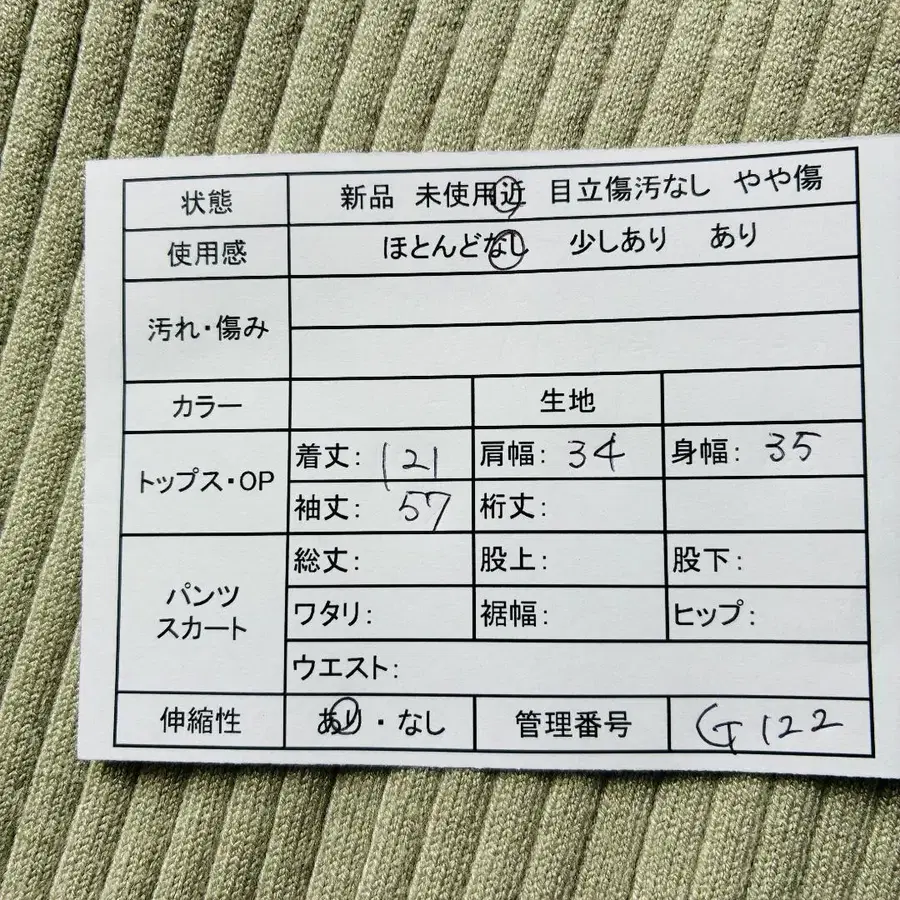 状態 新品 未使用近 目立傷汚なし やや傷
使用感 ほとんどなし 少しあり あり
汚れ・傷み
カラー 生地
トップス・OP 着丈: 121 肩幅: 34 身幅: 35
袖丈: 57 裄丈:
パンツ スカート 総丈: 股上: 股下:
ワタリ: 裾幅: ヒップ:
ウエスト:
伸縮性 あり・なし 管理番号 G122